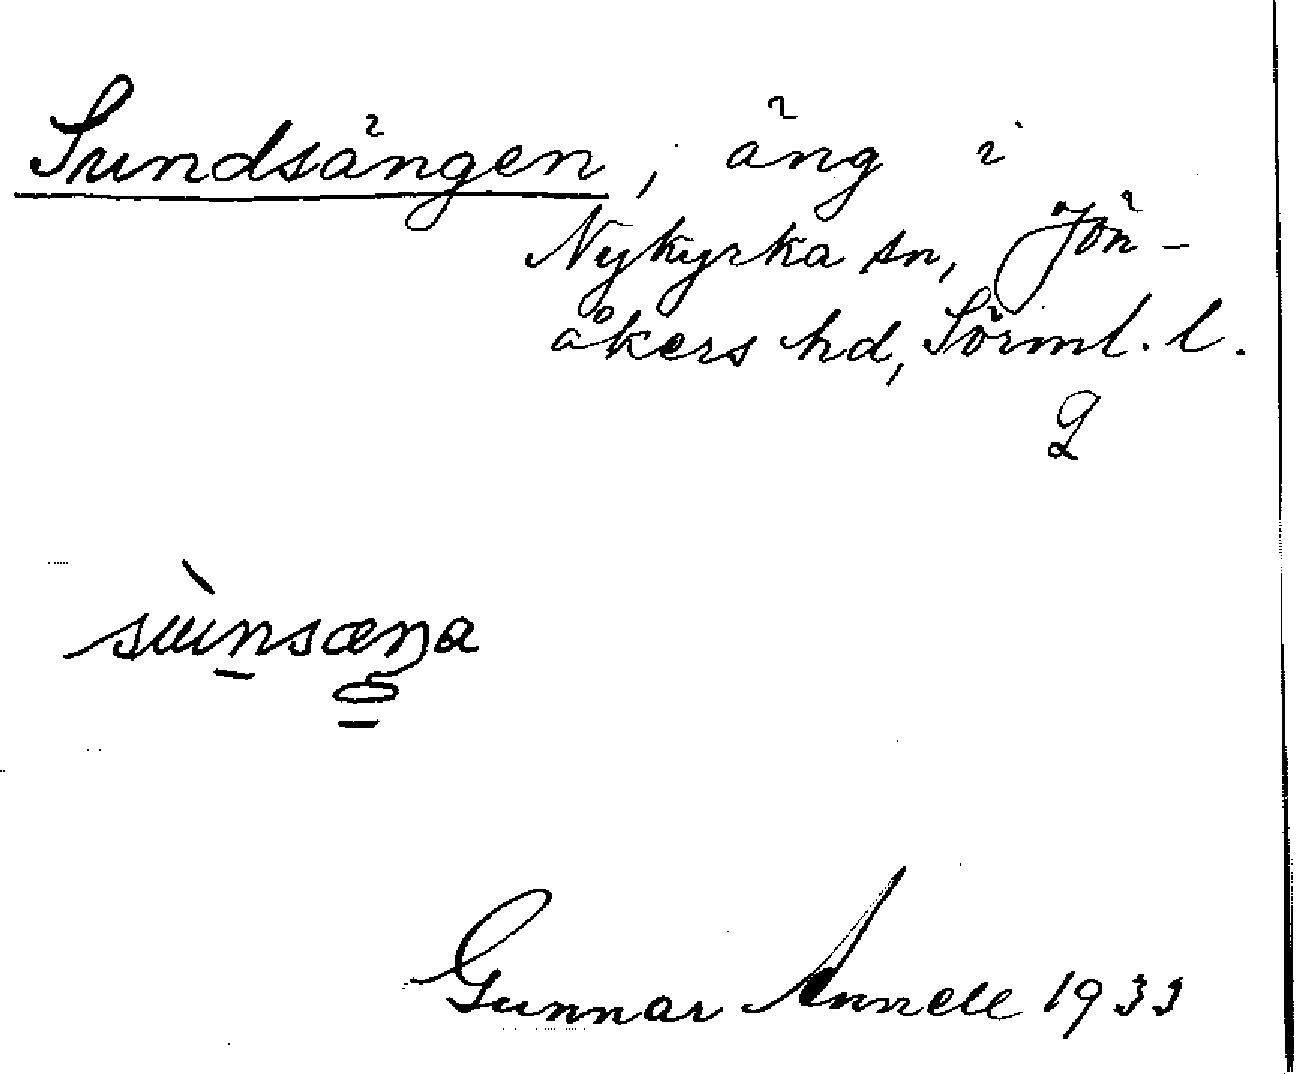 Sundsängen, äng i
Nykyrka sn, Jön-
åkers hd, Sörml. l.
Gunnar Annell 1933